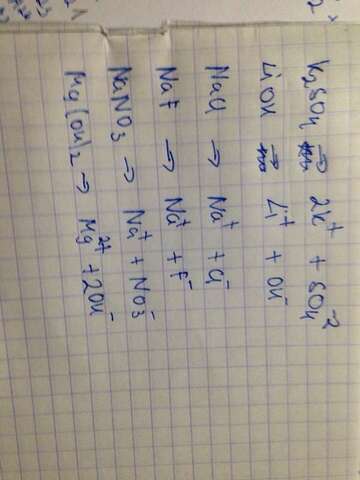 K₂SO₄ → 2K⁺ + SO₄⁻²
LiOH → Li⁺ + OH⁻
NaCl → Na⁺ + Cl⁻
NaF → Na⁺ + F⁻
NaNO₃ → Na⁺ + NO₃⁻
Mg(OH)₂ → Mg²⁺ + 2OH⁻